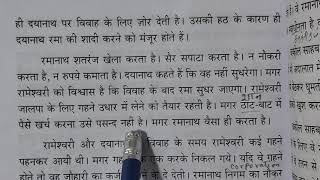 ही दयानाथ पर विवाह के लिए ज़ोर देती है। उसकी हठ के कारण ही
दयानाथ रमा की शादी करने को मंजूर होते हैं।
रमानाथ शतरंज खेला करता है। सैर सपाटा करता है। न नौकरी
करता है, न रुपये कमाता है। दयानाथ कहते हैं कि वह नहीं सुधरेगा। मगर
रामेश्वरी को विश्वास है कि विवाह के बाद रमा सुधर जाएगा। रामेश्वरी
जालपा के लिए गहने उधार में लेने को तैयार रहती है। मगर ठाट-बाट में
पैसे खर्च करना उसे पसन्द नहीं है। मगर रमानाथ वैसा ही करता है।
रामेश्वरी और दयानाथ विवाह के समय रामेश्वरी कई गहने
पहनकर आयी थी। मगर एक करके निकल गये। यदि वे गहने
होते तो वह जौहारी का कर्ज दे देती। रमानाथ निगम का नौकर